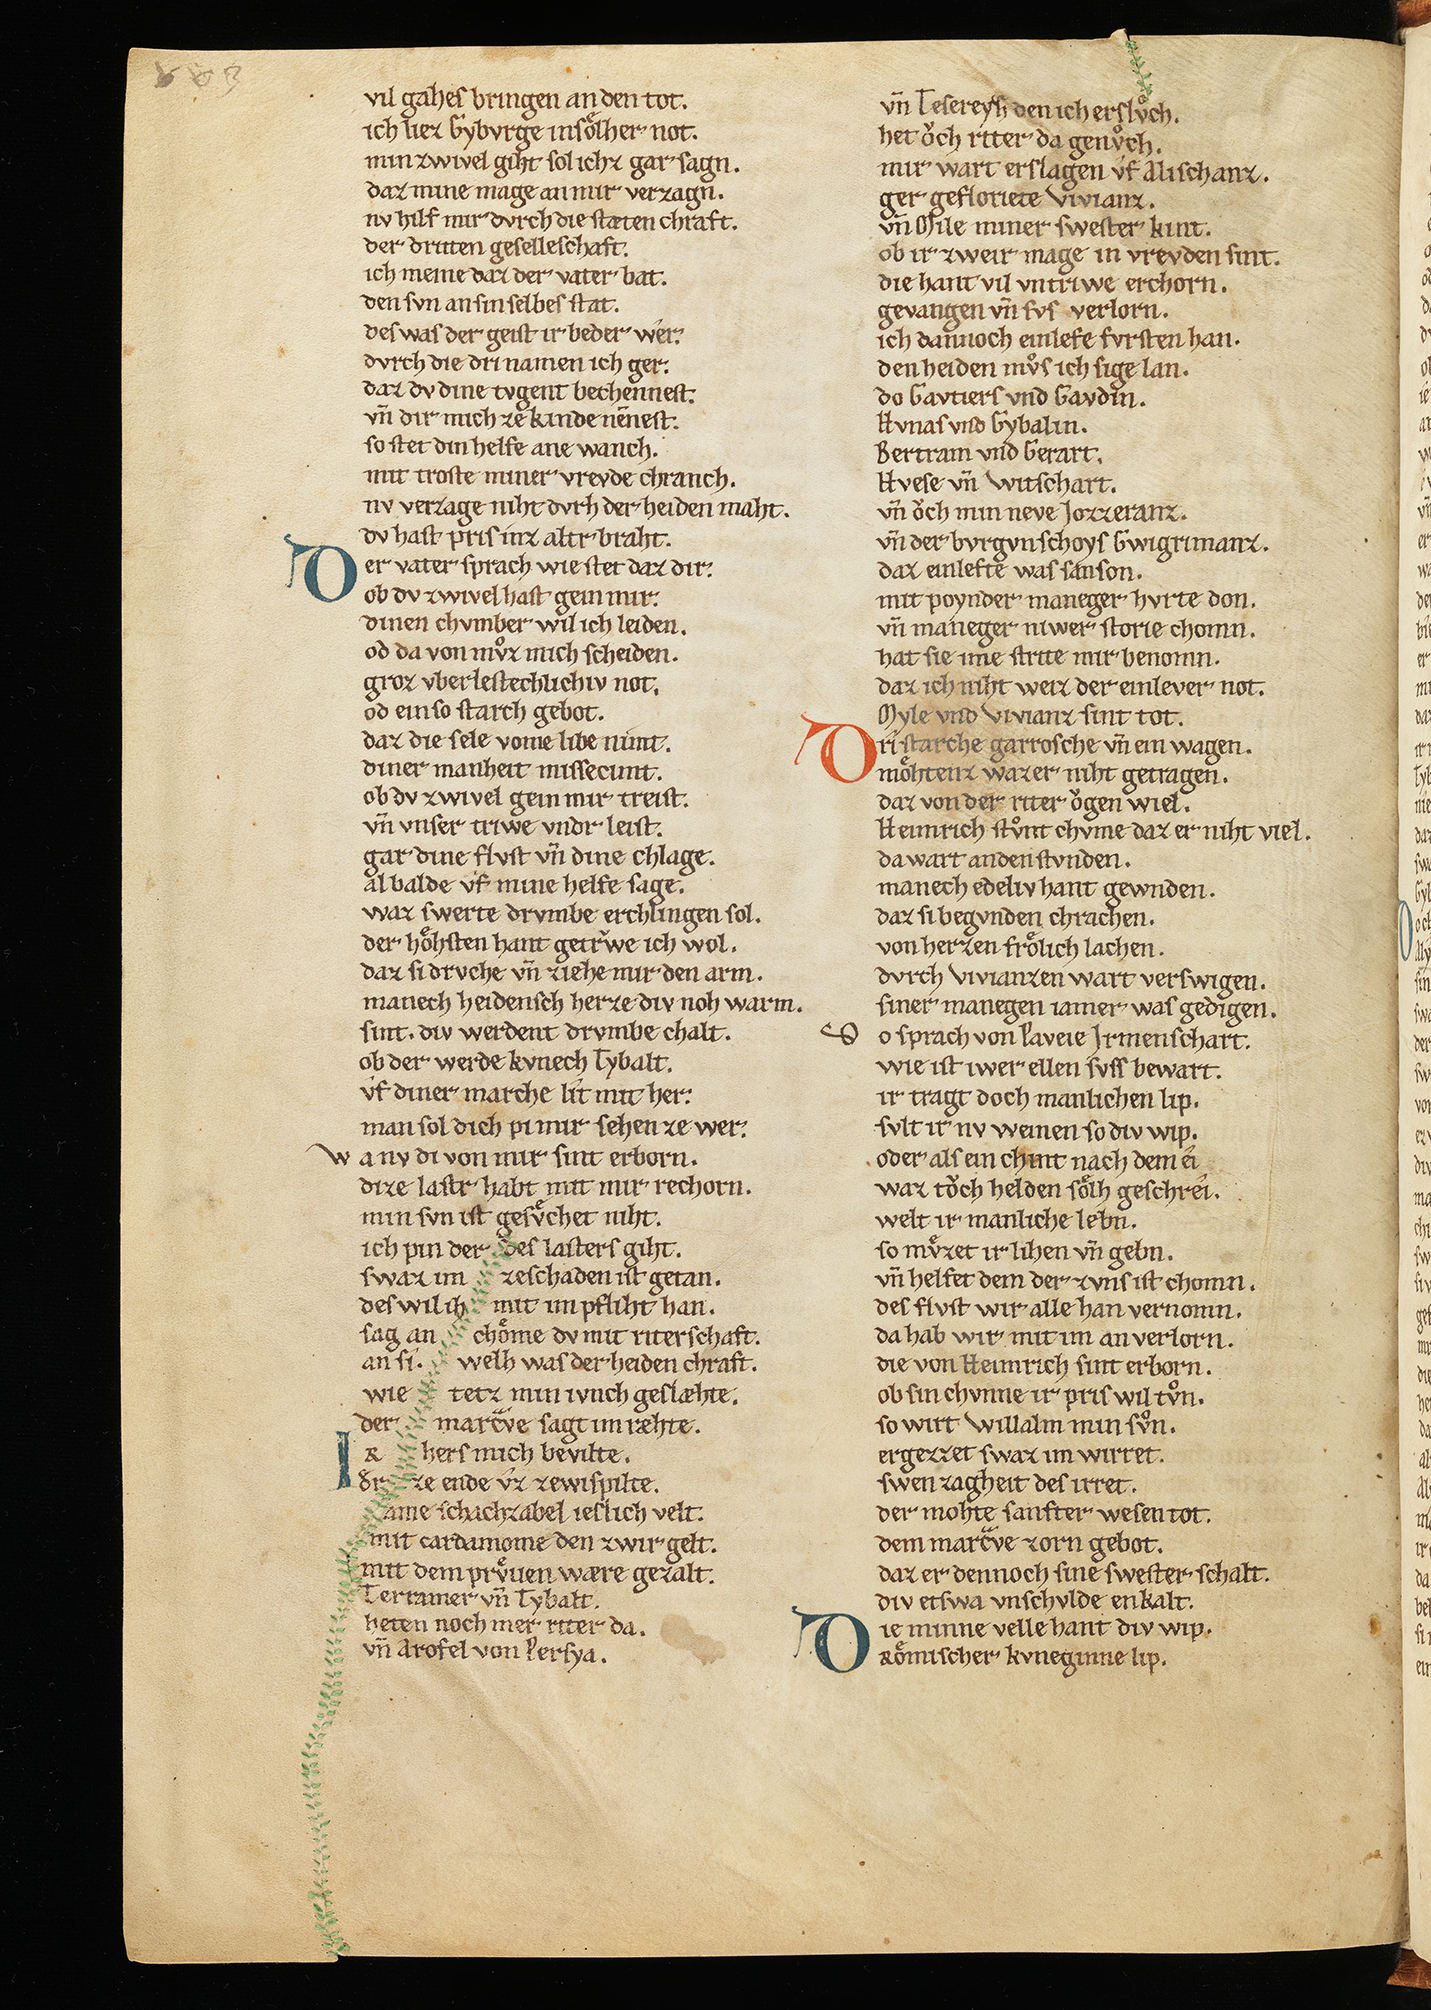 vil gahes bringen an den tot.
ich liez Gybvrge in sölher not.
min zwivel giht sol ichz gar sagn.
daz mine mage an mir verzagn.
nv hilf mir dvrch die stæten chraft.
der dritten geselleschaft.
ich meine daz der vater bat.
den svn an sin selbes stat.
des was der geist ir beder wer.
dvrch die dri namen ich ger.
daz dv dine tvgent bechennest.
vn̄ dir mich ze kinde nēnest.
so stet din helfe ane wanch.
mit troste miner vrevde chranch.
nv verzage niht dvrh der heiden maht.
dv hast pris inz altr braht.
Der vater sprach wie stet daz dir.
ob dv zwivel hast gein mir.
dinen chvmber wil ich leiden.
od da von mvͦz mich scheiden.
groz vberlestechlichiv not.
od ein so starch gebot.
daz die sele vome libe nimt.
diner manheit missecimt.
ob dv zwivel gein mir treist.
vn̄ vnser triwe vndr leist.
gar dine flvst vn̄ dine chlage.
al balde vf mine helfe sage.
waz swerte drvmbe erchlingen sol.
der höhsten hant getrwe ich wol.
daz si drvche vn̄ ziehe mir den arm.
manech heidensch herze div noh warm.
sint. div werdent drvmbe chalt.
ob der werde kvnech Tybalt.
vf diner marche lit mit her.
man sol dich pi mir sehen ze wer.
wa nv di von mir sint erborn.
dize lastr habt mit mir rechorn.
min svn ist gesvͦchet niht.
ich pin der des lasters giht.
swaz im ze schaden ist getan.
des wil ih mit im pfliht han.
sag an chöme dv mit riterschaft.
an si. welh was der heiden chraft.
wie tetz min ivnch geslæhte.
der marcͣve sagt im ræhte.
hers mich bevilte.
ze ende vz zewispilte.
ame schachzabel ieslich velt.
mit cardamome den zwir gelt.
mit dem prvͤuen wære gezalt.
Terramer vn̄ Tybalt.
heten noch mer riter da.
vn̄ Arofel von Persya.
vn̄ Tesereys den ich erslvͦch.
het ǒch riter da genvͦch.
mir wart erslagen vf Alischanz.
ger gefloriete Vivianz.
vn̄ Mile miner swester kint.
ob ir zweir mage in vrevden sint.
die hant vil vntriwe erchorn.
gevangen vn̄ svs verlorn.
ich dannoch einlefe fvrsten han.
den heiden mvͦs ich sige lan.
do Gavtiers vnd Gavdin.
Hvnas vnd Gybalin.
Bertram vnd Gerart.
Hvese vn̄ Witschart.
vn̄ ǒch min neve Jozzeranz.
vn̄ der bvrgvnschoys Gwigrimanz.
daz einlefte was sanson.
mit poynder maneger hvrte don.
vn̄ maneger niwer storie chomn.
hat sie ime strite mir benomn.
daz ich niht weiz der einlever not.
Myle vnd Vivianz sint tot.
Dri starche garrosche vn̄ ein wagen.
möhtenz wazer niht getragen.
daz von der riter ǒgen wiel.
Heimrich stvͦnt chvme daz er niht viel.
da wart an den stvnden.
manech edeliv hant gewnden.
daz si begvnden chrachen.
von herzen frölich lachen.
dvrch Vivianzen wart verswigen.
siner manegen iamer was gedigen.
So sprach von Paveie Jrmenschart.
wie ist iwer ellen svss bewart.
ir tragt doch manlichen lip.
svlt ir nv weinen so div wip.
oder als ein chint nach dem ei
waz tǒch helden sölh geschrei.
welt ir manliche lebn.
so mvͤzet ir lihen vn̄ gebn.
vn̄ helfet dem der zvns ist chomn.
des flvst wir alle han vernomn.
da hab wir mit im an verlorn.
die von Heimrich sint erborn.
ob sin chvnne ir pris wil tvͦn.
so wirt Willalm min svͦn.
ergezzet swaz im wirret.
swen zagheit des irret.
der mohte sanfter wesen tot.
dem marcͣve zorn gebot.
daz er dennoch sine swester schalt.
div etswa vnschvlde enkalt.
Die minne velle hant div wip.
Römischer kvneginne lip.